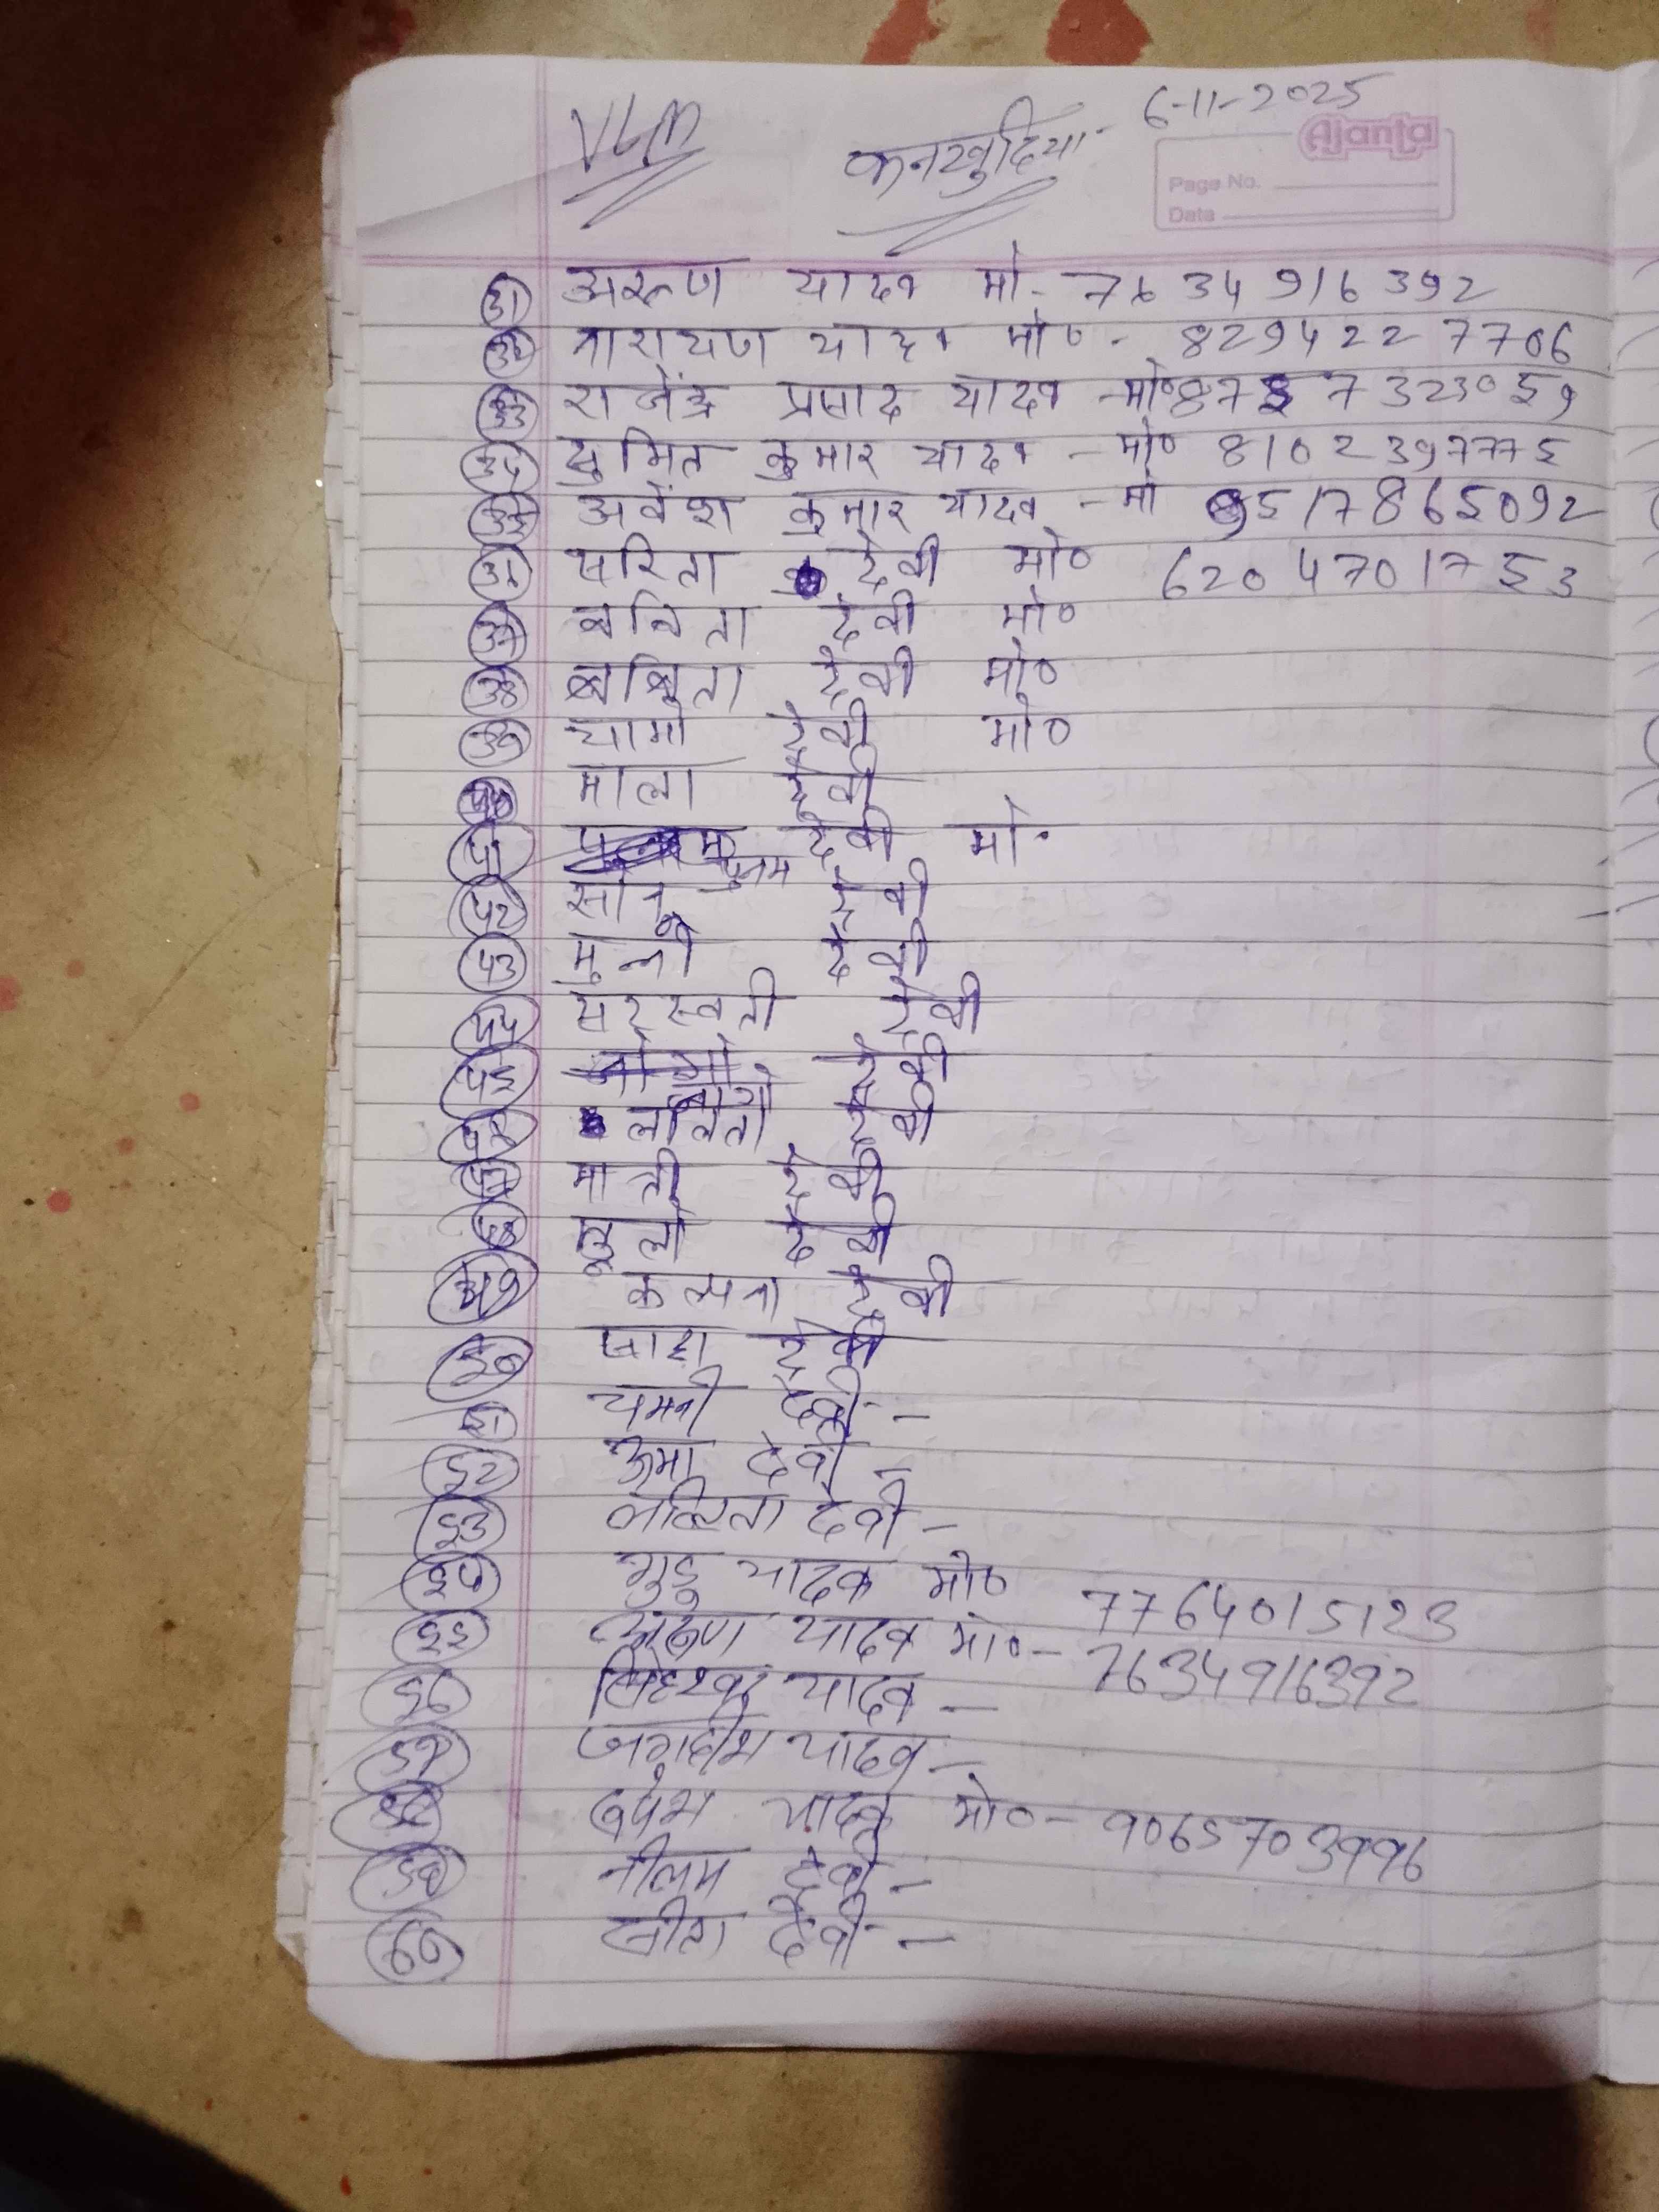 VLM कनखुदिया 6-11-2025
Ajanta
Page No.
Date
31 अरूण यादव मो- 7634916392
32 नारायण यादव मो० - 8294227706
33 राजेंद्र प्रसाद यादव -मो० 8757323059
34 सुमित कुमार यादव - मो० 8102397775
35 अवेंश कुमार यादव - मो 9517865092
36 सरिता देवी मो० 6204701753
37 बबिता देवी मो०
38 देवी मो०
39 चामो देवी मो०
40 माला देवी
41 पुनम देवी मो०
42 सोनू देवी
43 मुन्नी देवी
44 सरस्वती देवी
45 देवी
46 ललिता देवी
47 देवी
48 देवी
49 कल्पना देवी
50 देवी
51 देवी -
52 ऊमा देवी -
53 देवी -
54 गुडू यादव मो० 7764015123
55 अरूण यादव मो० - 7634916392
56 यादव -
57 जगदीश यादव -
58 यादव मो० - 9065703996
59 नीलम देवी -
60 देवी -